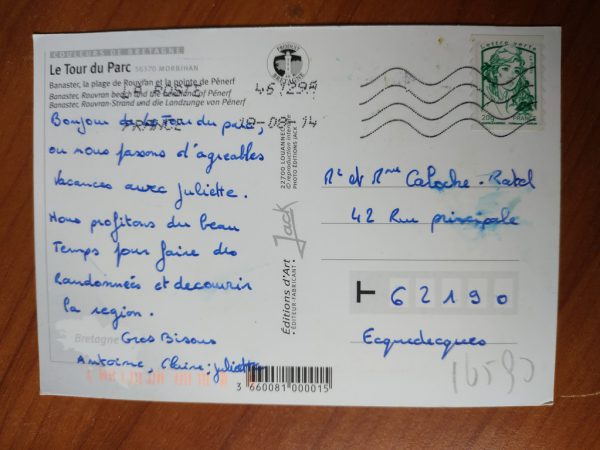 COULEURS DE BRETAGNE
Le Tour du Parc 56370 MORBIHAN
Banaster, la plage de Rouvran et la pointe de Pénerf
Banaster, Rouvran beach and the headland of Pénerf
Banaster, Rouvran-Strand und die Landzunge von Pénerf
LA POSTE 46129A
FRANCE 18-08-14
Bonjour de Le Tour du parc,
ou nous passons d'agreables
Vacances avec Juliette.
Nous profitons du beau
Temps pour faire des
Randonnées et decouvrir
la region.
Gros Bisous
Antoine, Claire, juliette
Bretagne
PRODUIT EN BRETAGNE
22700 LOUANNEC
© reproduction interdite
PHOTO EDITIONS JACK
Jack
Editions d'Art
• EDITEUR-FABRICANT •
3 660081 000015
Lettre verte
20g FRANCE
Mr et Mme Caloche-Ratel
42 Rue principale
62190
Ecquedecques
16590